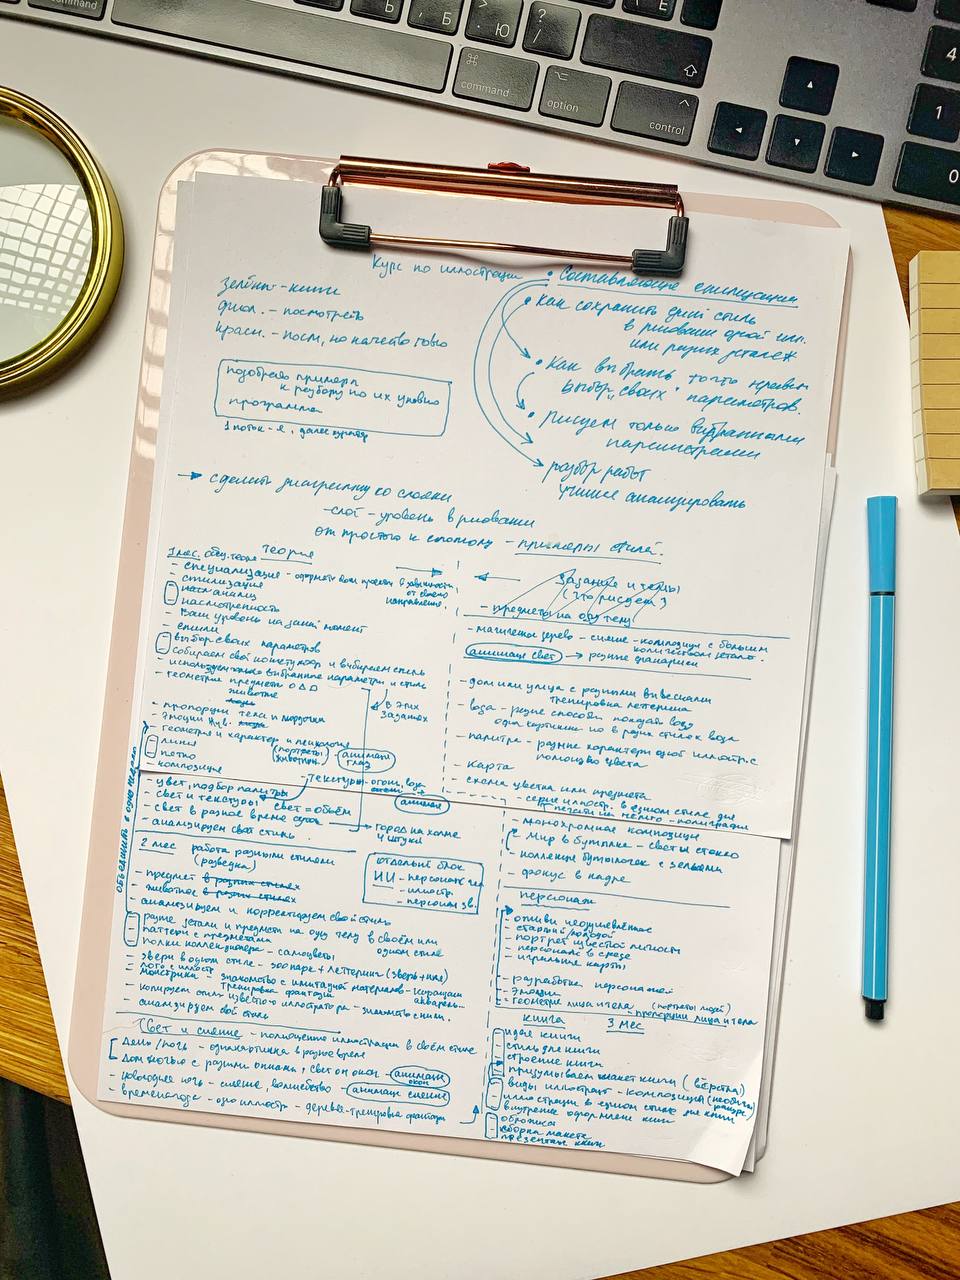 command
Ь
Б
Ю
?
/
command
option
control
4
1
0
Курс по иллюстрации
зелён. - книги
фиол. - посмотреть
красн. - посм, но начество говно
подобрать примера
к разбору по их уровню
программа
1 поток - я, далее куратор
• Составляющие стилизации
• Как сохранить один стиль
в рисовании одной илл.
или разных деталей
• Как выбрать то что нравится
выбор своих параметров.
• Рисуем только выбранными
параметрами
разбор работ
учимся анализировать
→ сделать диаграмму со слоями
- слой - уровень в рисовании
от простого к сложному - примеры стилей.
Теория
1 мес. общ. теория
- специализация -
в зависимости
от своего
направления.
- стилизация
- насмотренность
- Ваш уровень на данный момент
- стили
- выбор своих параметров
- собираем свой и выбираем стиль
- используем только выбранные параметры и стиль
- геометрия предметы О Δ □
животные
- пропорции тела и мордочки
- эмоции
- геометрия и характер и психология
- линия
(портреты
животных)
анимация
глаз
- пятно
- композиция
в этих
заданиях
- текстуры - огонь, вода
анимация
- цвет, подбор палитры
- свет и текстуры
свет = объём
- свет в разное время суток
- анализируем свой стиль
→ город на холме
4 штуки
объединить в одну неделю
Задания и темы
(что рисуем)
- предметы на одну тему
- магическое дерево - сияние - композиция с большим
количеством детал.
анимация свет → разные фонарики
- дом или улица с разными вывесками
тренировка леттеринга
- вода - разные способы показать воду
одна картинка но в разных стилях вода
- палитра - разные характеры одной иллюстр. с
помощью цвета
- карта
- схема цветка или предмета
- серия иллюстр. в едином стиле для
печати на чём-то - полиграфии
- монохромная композиция
- Мир в бутылке - свет и стекло
- коллекция бутылочек с зельями
- фокус в кадре
2 мес работа разными стилями
(разведка)
- предмет в разных стилях
- животное в разных стилях
- анализируем и корректируем свой стиль
отдельный блок
ИИ - персонажи
- иллюстр.
- персонаж зв.
- разные детали и предметы на одну тему в своём или
одном стиле
- паттерн с предметами
- полки коллекционера - самоцветы
- звери в одном стиле - зоопарк + леттеринг (зверь + имя)
- монстрики - знакомство с имитацией материалов - карандаш
тренировка фантазии
акварель...
- копируем стиль известного иллюстратора - знакомство с ними.
- анализируем свой стиль
Свет и сияние - полноценные иллюстрации в своём стиле
День / ночь - одна картинка в разное время
Дом ночью с разными окнами, свет от окон - анимация
окон
новогодняя ночь - сияние, волшебство - анимация сияния
- времена года - одна иллюстр - деревья - тренировка фантазии
персонаж
- оживи неодушевлённое
- старый / молодой
- портрет известной личности
- персонаж в среде
- игральные карты
- разработка персонажей
- эмоции
- геометрия лица и тела (портреты людей)
- пропорции лица и тела
книга 3 мес
- идея книги
- стиль для книги
- строение книги
- придумываем макет книги (вёрстка)
- виды иллюстрац - композиция (необычн.
ракурс)
- иллюстрации в едином стиле для книги
- внутреннее оформление книги
- обложка
- сборка макета
- презентация книги